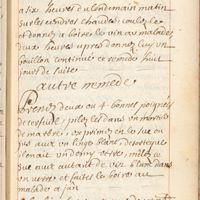 a six heures du lendemain matin
sur les cendres chaudes, coulez le
et donnez a boire le vin au malade
deux heures apres donnez luy un
bouillon continuez ce remede huit
jours de suite
autre remede
Prenez deux ou 4 bonnes poignees
de cerfeuil, pilez les dans un mortier
de marbre, exprimez en le suc ou
jus aux un linge blanc,
un demy verre, mélez
sue autant de vin blanc dans
un verre et faites le boire au
malade a jeun